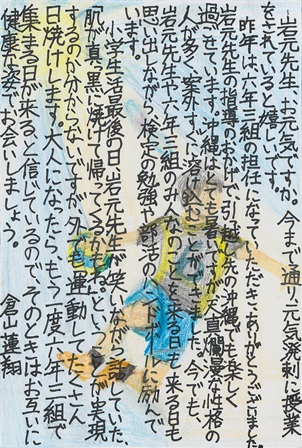 岩元先生、お元気ですか。今まで通り元気発剌に授業
をされていると嬉しいです。
昨年は六年三組の担任になっていただき、ありがとうございました。
岩元先生の指導のおかげで、引っ越し先の沖縄でも楽しく
過ごせています。沖縄は
人が多く、案外すぐに溶け込むことが
天真爛漫な性格の
今でも、
岩元先生や六年三組のみんなのことを来る日も来る日も
思い出しながら、検定の勉強や部活のハンドボールに励んで
います。
小学生活最後の日、岩元先生が笑いながら話していた、
肌が真っ黒に焼けて帰ってくるかもね、ということが実現
するのか分からないですが、夕でも運動してたくさん
日焼けします。大人になったら、もう一度六年三組で
集まる日が来ると信じているので、そのときはお互いに
健康な姿でお会いしましょう。
倉山蓮翔